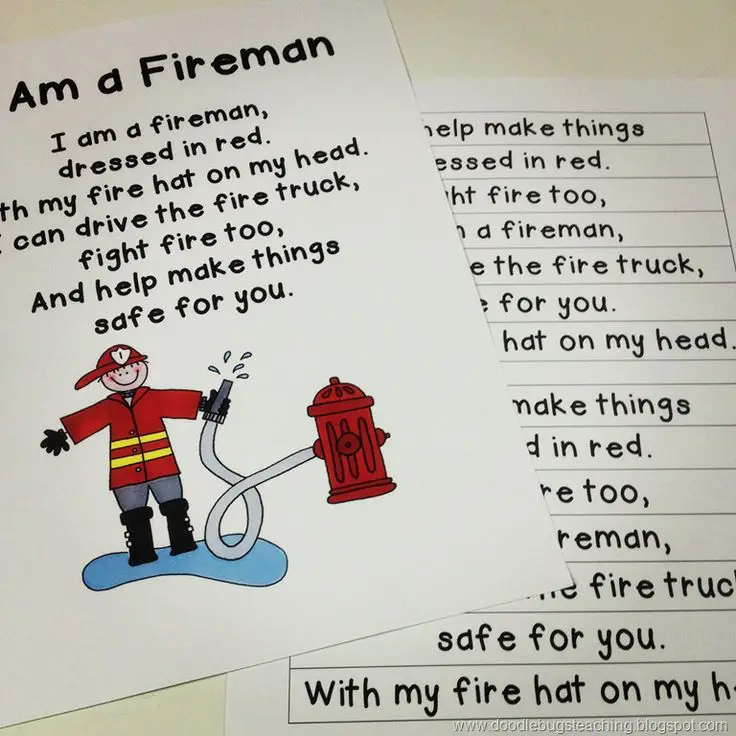 Am a Fireman
I am a fireman,
dressed in red.
my fire hat on my head.
can drive the fire truck,
fight fire too,
And help make things
safe for you.
1
help make things
in red.
fire too,
a fireman,
the fire truck,
for you.
hat on my head.
make things
in red.
too,
fire
safe for you.
With my fire hat on my
www.doodlebugsteaching.blogspot.com